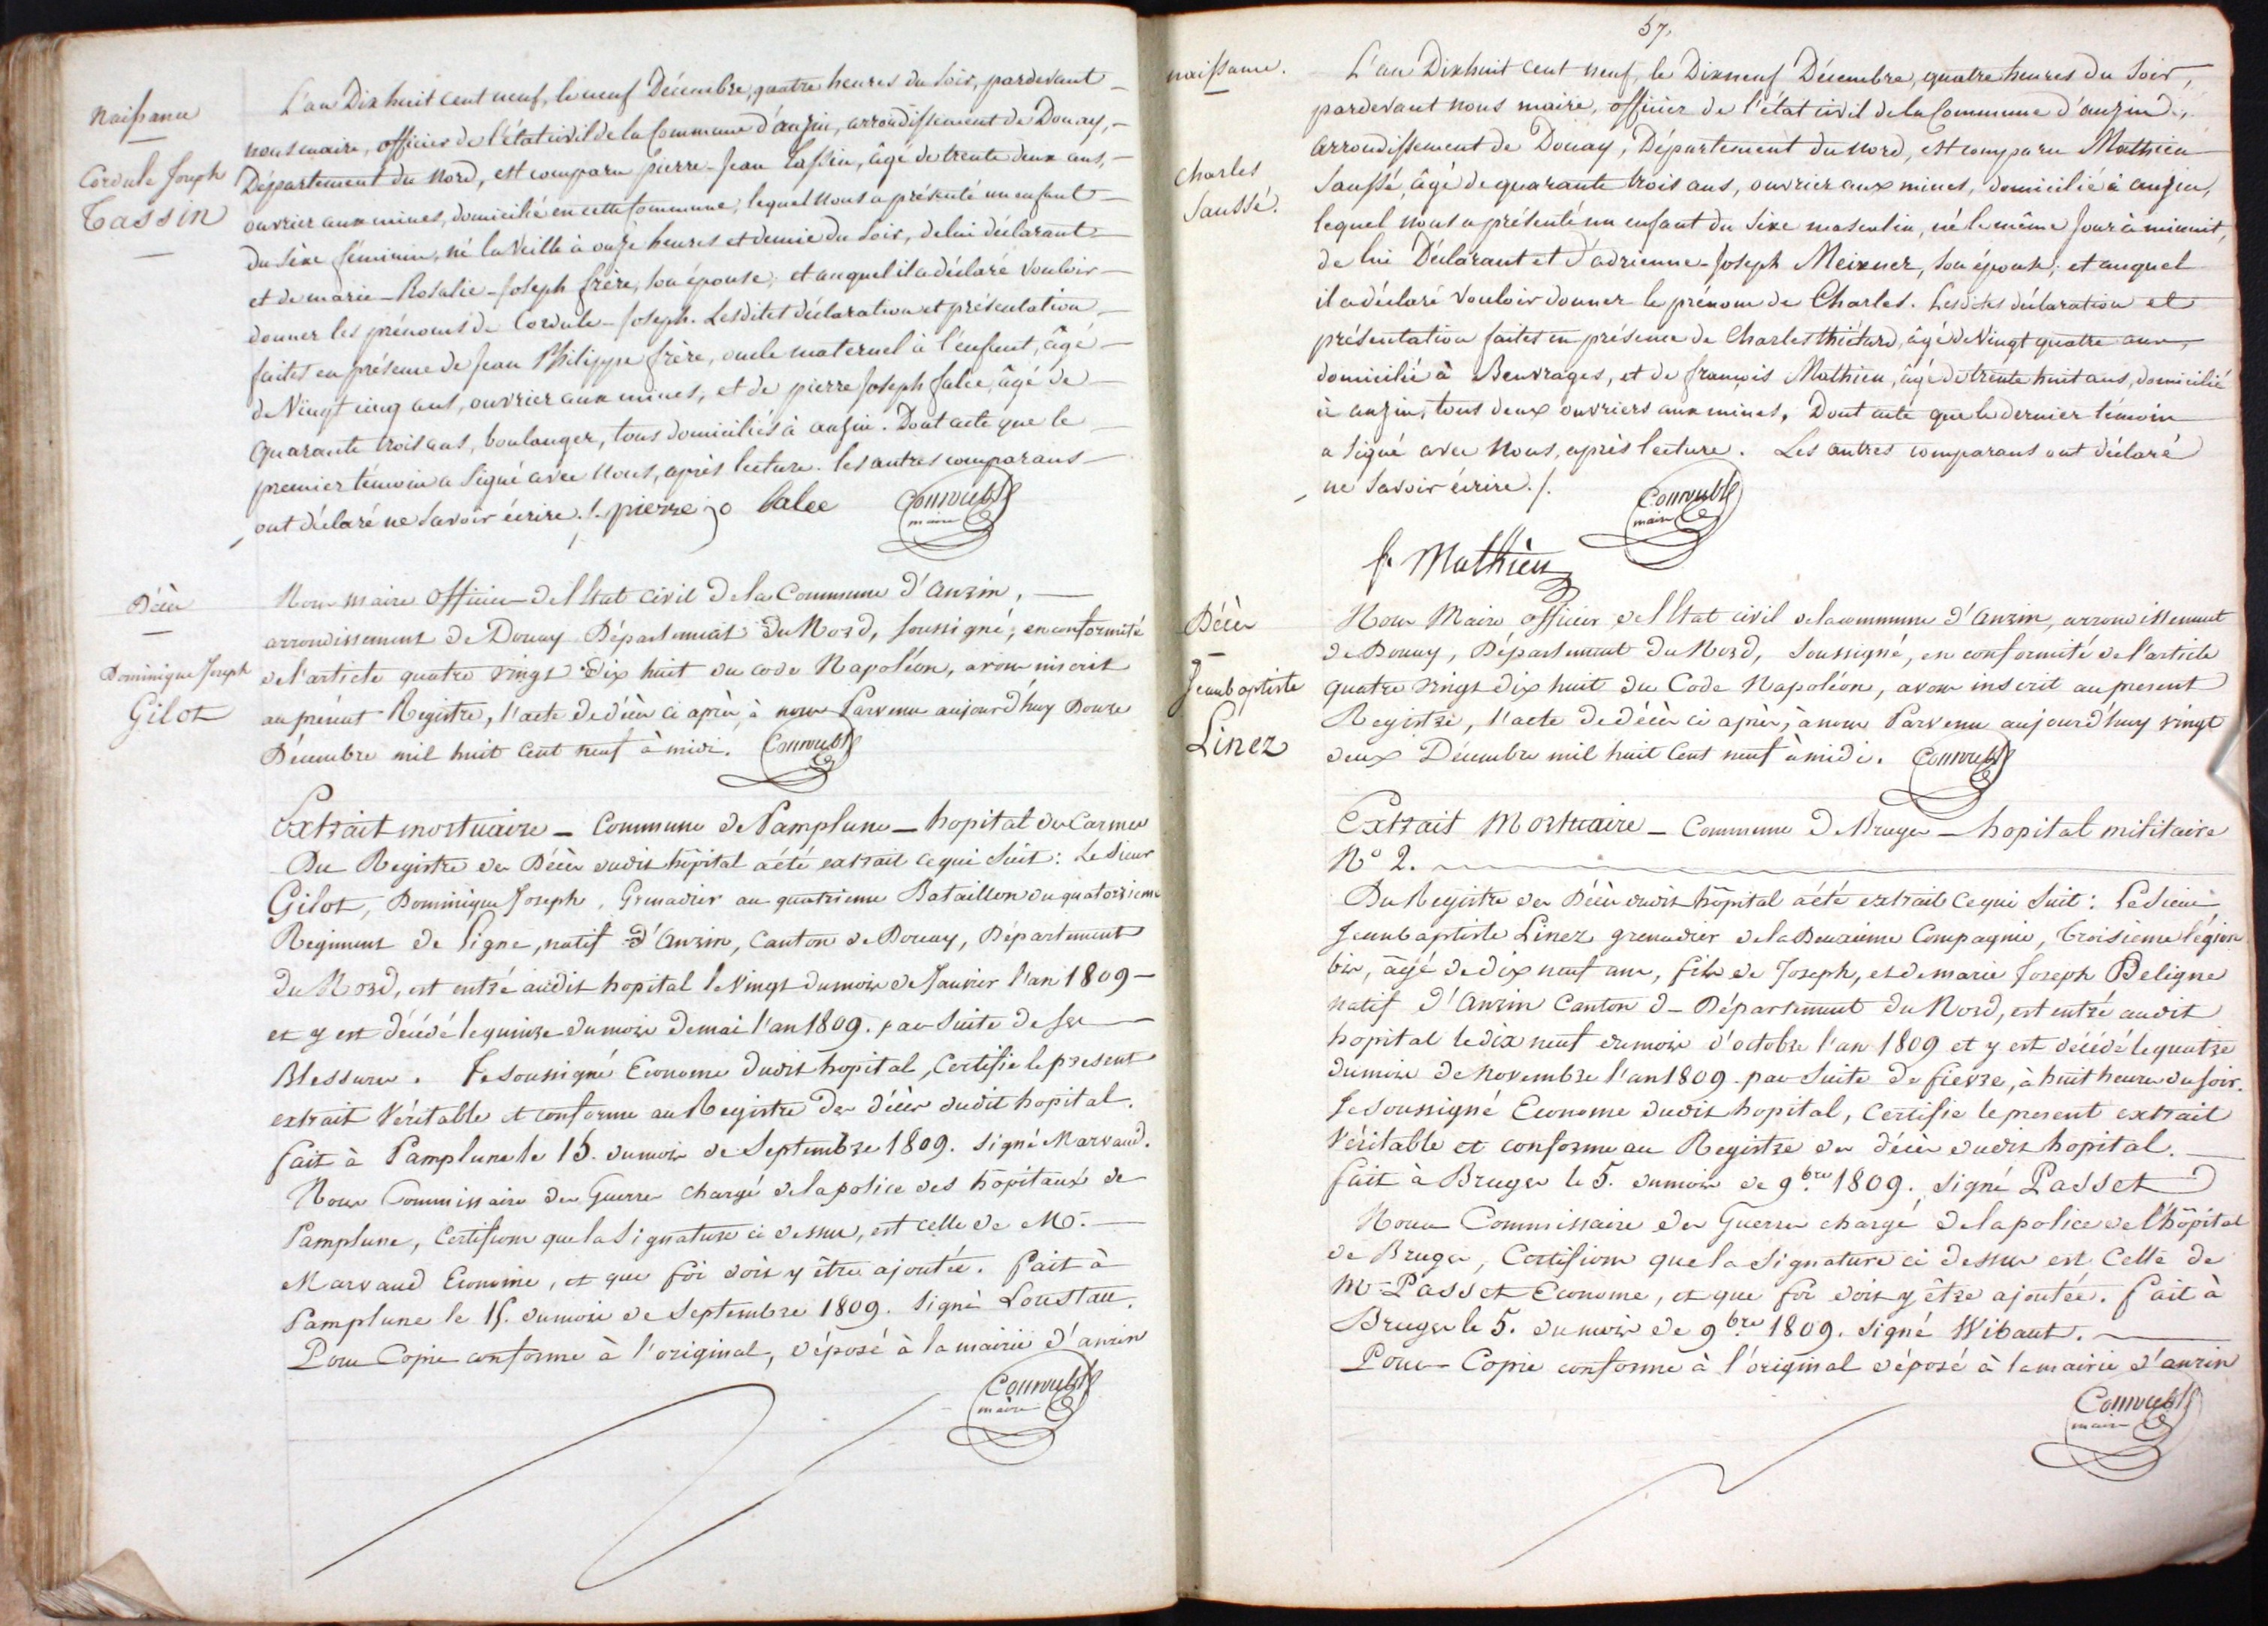 Naissance
Cordule Joseph
Tassin
L'an Dix huit cent neuf, le neuf Décembre, quatre heures du soir, pardevant
nous maire, officier de l'état civil de la Commune d'anzin, arrondissement de Douay,
Département du Nord, est comparu pierre-Jean Tassin, âgé de trente deux ans,
ouvrier aux mines, domicilié en cette Commune, lequel nous a présenté un enfant
du sèxe féminin, né la veille à onze heures et demie du soir, de lui déclarant
et de marie-Rosalie-Joseph frère, son épouse, et auquel il a déclaré vouloir
donner les prénoms de Cordule-Joseph. Lesdites déclaration et présentation
faites en présence de Jean Philippe frère, oncle maternel à l'enfant, âgé
de Vingt cinq ans, ouvrier aux mines, et de pierre Joseph Calee, âgé de
quarante trois ans, boulanger, tous domiciliés à anzin. Dont acte que le
premier témoin a signé avec nous, après lecture. les autres comparans
ont déclaré ne savoir écrire ./. pierre jo Calee
maire
Décès
Dominique Joseph
Gilot
Nous maire officier del'Etat civil de la Commune d'Anzin,
arrondissement de Douay Département du Nord, soussigné, en conformité
de l'article quatre vingt dix huit du code Napoléon, avons inscrit
au présent Registre, l'acte de décès ci après à nous Parvenu aujourd'huy Douze
Décembre mil huit Cent neuf à midi.
Extrait mortuaire - Commune de Pamplune - hopital des Carmes
Du Registre des Décès dudit hôpital a été extrait ce qui suit : Le sieur
Gilot, Dominique Joseph, Grenadier au quatrieme Bataillon du quatorzieme
Regiment de Ligne, natif d'Anzin, Canton de Douay, Département
du Nord, est entré audit hopital le Vingt du mois de Janvier l'an 1809
et y est décédé le quinze du mois de mai l'an 1809. par Suite de ses
Blessures. Je soussigné Econome dudit hopital, Certifie le present
extrait Véritable et conforme au Registre des décès dudit hopital.
fait à Pamplune le 15. du mois de Septembre 1809. signé Marvaud.
Nous Commissaire des Guerres chargé de la police des hôpitaux de
Pamplune, Certifions que la Signature ci dessus, est celle de Mr.
Marvaud Econome, et que foi doit y être ajoutée. fait à
Pamplune le 15. du mois de Septembre 1809. Signé Loustau.
Pour Copie conforme à l'original, déposé à la mairie d'anzin
maire
57.
naissance.
Charles
Saussé.
L'an Dixhuit cent neuf, le Dixneuf Décembre, quatre heures du soir,
pardevant nous maire, officier de l'état civil de la Commune d'anzin,
arrondissement de Douay, Département du Nord, est comparu Mathieu
Saussé, âgé de quarante trois ans, ouvrier aux mines, domicilié à anzin,
lequel nous a présenté un enfant du sèxe masculin, né le même jour à minuit,
de lui Déclarant et d'adrienne-Joseph Meixner, son épouse, et auquel
il a déclaré vouloir donner le prénom de Charles. Lesdites déclaration et
présentation faites en présence de Charles thiétard, âgé de Vingt quatre ans,
domicilié à Beuvrages, et de françois Mathieu, âgé de trente huit ans, domicilié
à anzin, tous deux ouvriers aux mines. Dont acte que le dernier témoin
a signé avec nous, après lecture. Les autres comparans ont déclaré
ne savoir écrire ./.
maire
f. Mathieu
Décès
Jean baptiste
Linez
Nous Maire officier de l'Etat civil de la commune d'Anzin, arrondissement
de Douay, Département du Nord, soussigné, en conformité de l'article
quatre vingt dix huit du Code Napoléon, avons inscrit au present
Registre, l'acte de décès ci après, à nous Parvenu aujourd'huy vingt
deux Décembre mil huit Cent neuf à midi.
Extrait Mortuaire - Commune de Bruges - hopital militaire
N° 2.
Du Registre des Décès dudit hôpital a été extrait ce qui suit : Le sieur
Jean baptiste Linez grenadier de la Deuxieme Compagnie, troisieme légion
bis, âgé de dix neuf ans, fils de Joseph, et de marie Joseph Beligne
natif d'Anzin Canton d- Département du Nord, est entré audit
hopital le dix neuf du mois d'octobre l'an 1809 et y est décédé le quatre
du mois de Novembre l'an 1809. par Suite de fievre, à huit heures du soir.
Je soussigné Econome dudit hopital, certifie le present extrait
Véritable et conforme au Registre des décès dudit hopital.
fait à Bruges le 5. du mois de 9bre 1809. signé Passet
Nous Commissaire des Guerres chargé de la police de l'hôpital
de Bruges, Certifions que la signature ci dessus est Celle de
Mr Passet Econome, et que foi doit y être ajoutée. fait à
Bruges le 5. du mois de 9bre 1809. signé Wibaut.
Pour Copie conforme à l'original déposé à la mairie d'anzin
maire